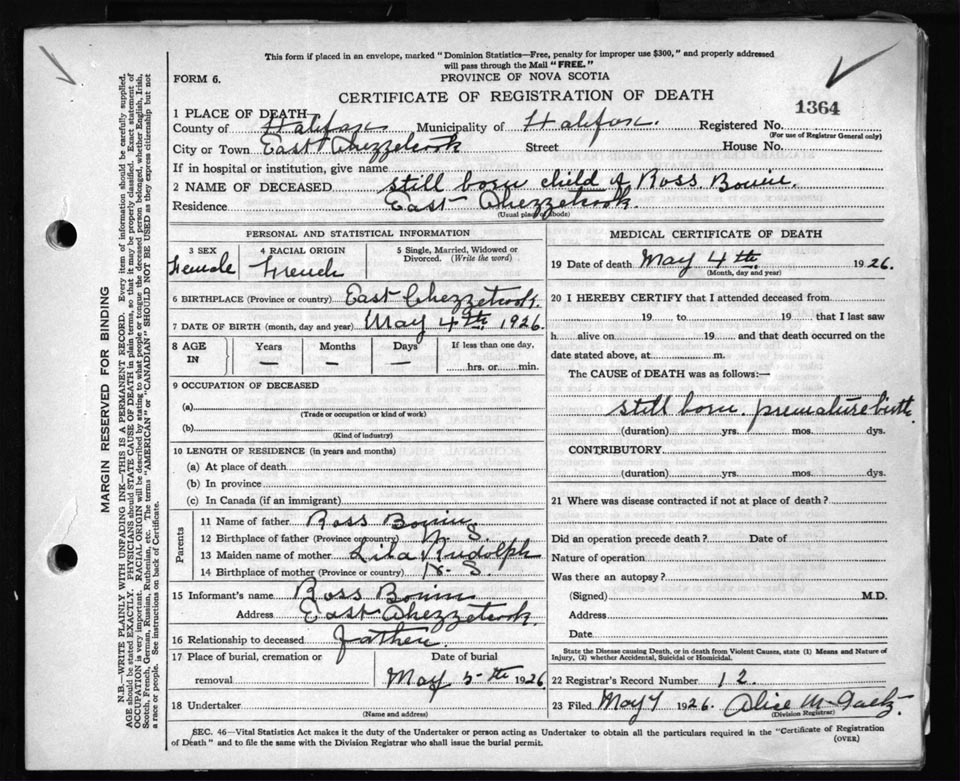 This form if placed in an envelope, marked "Dominion Statistics—Free, penalty for improper use $300," and properly addressed
will pass through the Mail "FREE."
FORM 6.
PROVINCE OF NOVA SCOTIA
CERTIFICATE OF REGISTRATION OF DEATH
1364
1 PLACE OF DEATH
County of Halifax Municipality of Halifax Registered No.
(For use of Registrar General only)
City or Town East Chezzetcook Street House No.
If in hospital or institution, give name
2 NAME OF DECEASED still born child of Ross Bonin.
Residence East Chezzetcook.
(Usual place of abode)
PERSONAL AND STATISTICAL INFORMATION
3 SEX 4 RACIAL ORIGIN 5 Single, Married, Widowed or
Divorced. (Write the word)
Female French
6 BIRTHPLACE (Province or country) East Chezzetcook.
7 DATE OF BIRTH (month, day and year) May 4th. 1926.
8 AGE IN Years Months Days If less than one day,
— — — hrs. or min.
9 OCCUPATION OF DECEASED
(a)
(Trade or occupation or kind of work)
(b)
(Kind of industry)
10 LENGTH OF RESIDENCE (in years and months)
(a) At place of death
(b) In province
(c) In Canada (if an immigrant)
Parents
11 Name of father Ross Bonin
12 Birthplace of father (Province or country) N. S.
13 Maiden name of mother Lila Rudolph
14 Birthplace of mother (Province or country) N. S.
15 Informant's name Ross Bonin
Address East Chezzetcook.
16 Relationship to deceased father.
17 Place of burial, cremation or removal Date of burial
May 5th 1926
18 Undertaker
(Name and address)
MEDICAL CERTIFICATE OF DEATH
19 Date of death May 4th. 1926.
(Month, day and year)
20 I HEREBY CERTIFY that I attended deceased from
19 to 19 that I last saw
h alive on 19 and that death occurred on the
date stated above, at m.
The CAUSE of DEATH was as follows:—
still born. premature birth
(duration) yrs. mos. dys.
CONTRIBUTORY
(duration) yrs. mos. dys.
21 Where was disease contracted if not at place of death?
Did an operation precede death? Date of
Nature of operation
Was there an autopsy?
(Signed) M.D.
Address
Date
State the Disease causing Death, or in death from Violent Causes, state (1) Means and Nature of
Injury, (2) whether Accidental, Suicidal or Homicidal.
22 Registrar's Record Number 12.
23 Filed May 7 1926. Alice M. Gaetz.
(Division Registrar)
SEC. 46—Vital Statistics Act makes it the duty of the Undertaker or person acting as Undertaker to obtain all the particulars required in the "Certificate of Registration
of Death" and to file the same with the Division Registrar who shall issue the burial permit.
(OVER)
MARGIN RESERVED FOR BINDING
N.B.—WRITE PLAINLY WITH UNFADING INK—THIS IS A PERMANENT RECORD. Every item of information should be carefully supplied.
AGE should be stated EXACTLY. PHYSICIANS should STATE CAUSE OF DEATH in plain terms, so that it may be properly classified. Exact statement of
OCCUPATION is very important. RACIAL ORIGIN will be described by stating to what people or tongue the deceased person belonged, whether English, Irish,
Scotch, French, German, Russian, Ruthenian, etc. The terms "AMERICAN" or "CANADIAN" SHOULD NOT BE USED as they express citizenship but not
a race or people. See instructions on back of Certificate.